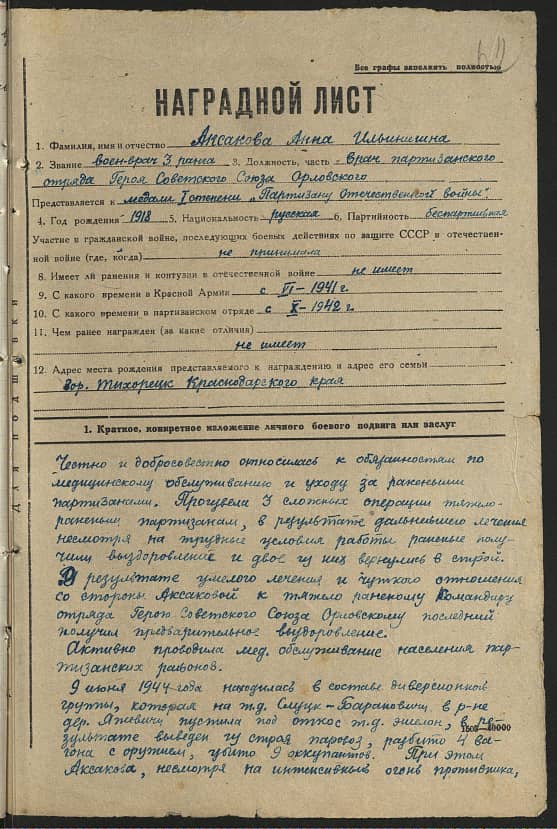 Все графы заполнять полностью
НАГРАДНОЙ ЛИСТ
1. Фамилия, имя и отчество Аксакова Анна Ильинишна
2. Звание воен-врач 3 ранга 3. Должность, часть врач партизанского
отряда Героя Советского Союза Орловского
Представляется к медали I степени „Партизану Отечественной войны".
4. Год рождения 1918 5. Национальность русская 6. Партийность беспартийная
Участие в гражданской войне, последующих боевых действиях по защите СССР и отечествен-
ной войне (где, когда) не принимала
8. Имеет ли ранения и контузии в отечественной войне не имеет
9. С какого времени в Красной Армии с VI – 1941 г.
10. С какого времени в партизанском отряде с X – 1942 г.
11. Чем ранее награжден (за какие отличия)
не имеет
12. Адрес места рождения представляемого к награждению и адрес его семьи
гор. Тихорецк Краснодарского края
1. Краткое, конкретное изложение личного боевого подвига или заслуг
Честно и добросовестно относилась к обязанностям по
медицинскому обслуживанию и уходу за ранеными
партизанами. Произвела 3 сложных операции тяжело-
раненым партизанам, в результате дальнейшего лечения
несмотря на трудные условия работы раненые полу-
чили выздоровление и двое из них вернулись в строй.
В результате умелого лечения и чуткого отношения
со стороны Аксаковой к тяжело раненому Командиру
отряда Герою Советского Союза Орловскому последний
получил предварительное выздоровление.
Активно проводила мед. обслуживание населения пар-
тизанских районов.
9 июня 1944 года находилась в составе диверсионной
группы, которая на ж.д. Слуцк – Барановичи в р-не
дер. пустила под откос ж.д. эшелон, в ре-
зультате выведен из строя паровоз, разбито 4 ва-
гона с оружием, убито 9 оккупантов. При этом
Аксакова, несмотря на интенсивный огонь противника,
для подшивки